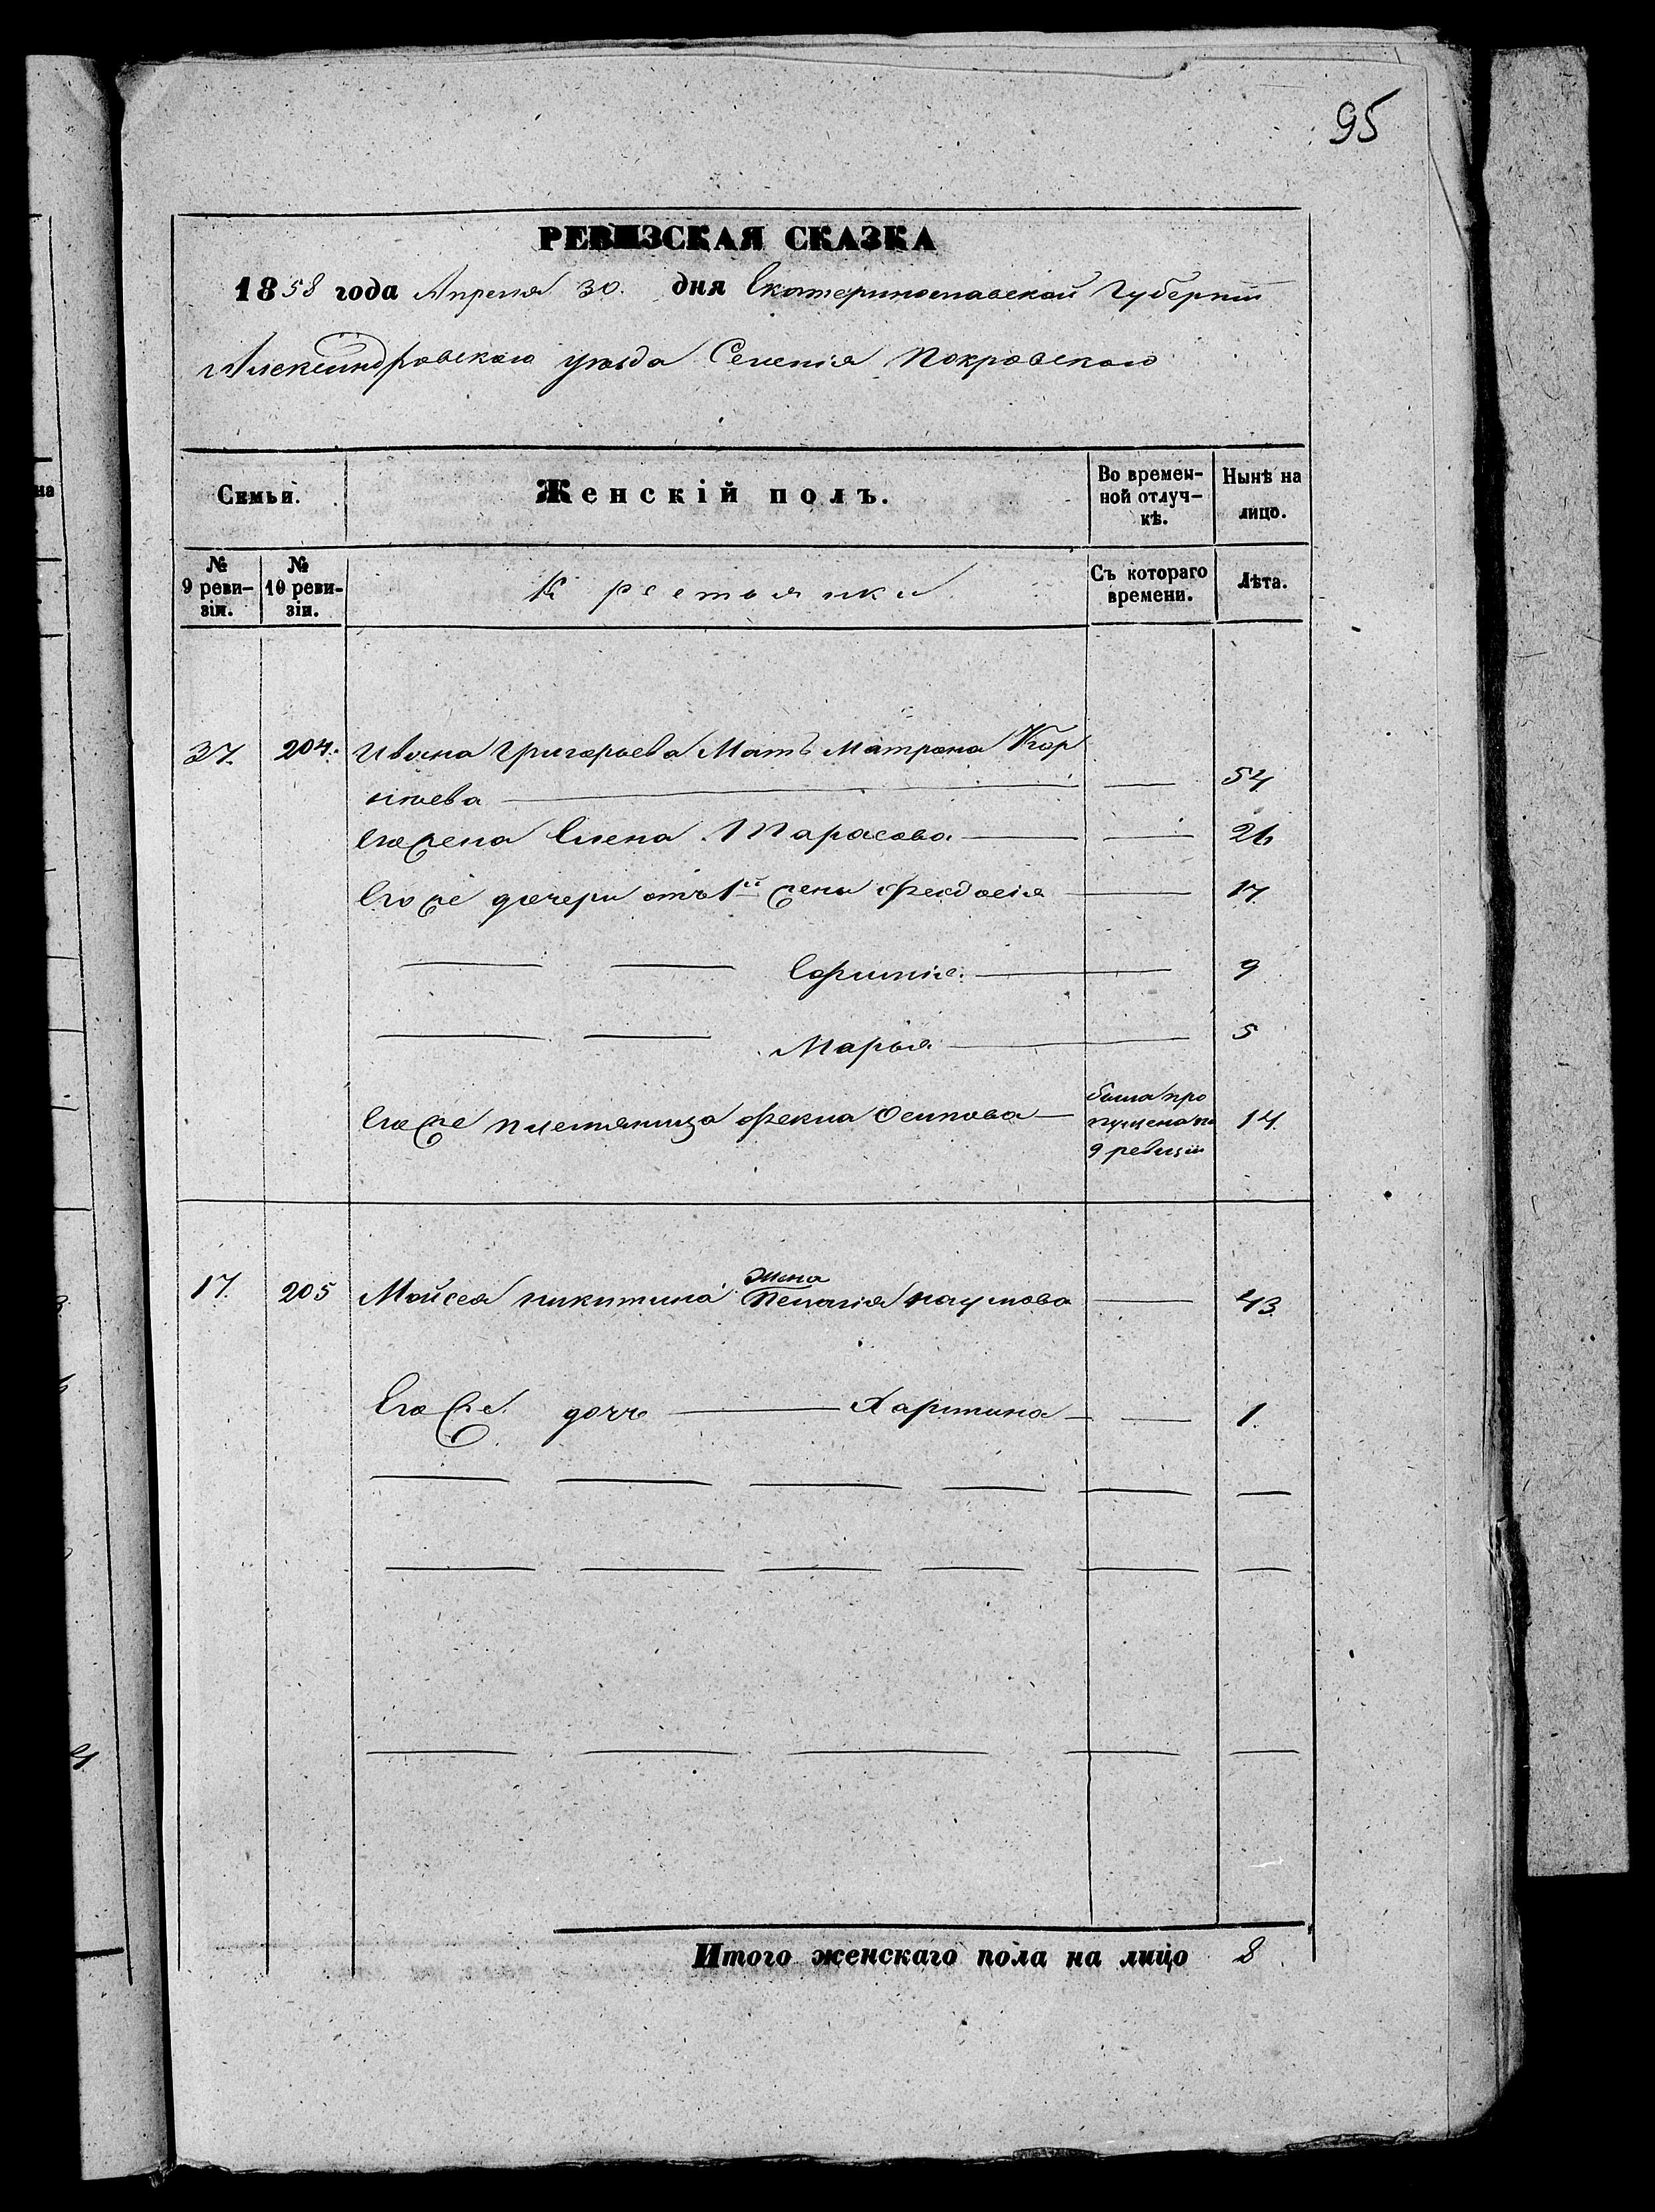 95
РЕВИЗСКАЯ СКАЗКА
1858 года Апреля 30. дня Екатеринославской Губерніи
Александровского уезда Селенія Покровского
Семьи. Женскій полъ. Во временной отлучкѣ. Нынѣ на лицо.
№ 9 ревизіи. № 10 ревизіи. Крестьянки Съ котораго времени. Лѣта.
37. 204. Ивана Григорьева Мать Матрона Кор
нѣева — — 54
Его жена Елена Тарасова — — 26
Его же дочери отъ 1й жены Феодосія — 17.
— — Ефимія. — 9
— — Марья — 5
Его же племяница Фекла Осипова — была про
пущена по 14.
9 ревизіи
жена
17. 205 Мойсея Никитина Пелагія Наумова — 43.
Его же дочь — Харитина — — 1.
— — — — — —
— — — — — —
— — — — —
Итого женскаго пола на лицо 8
на